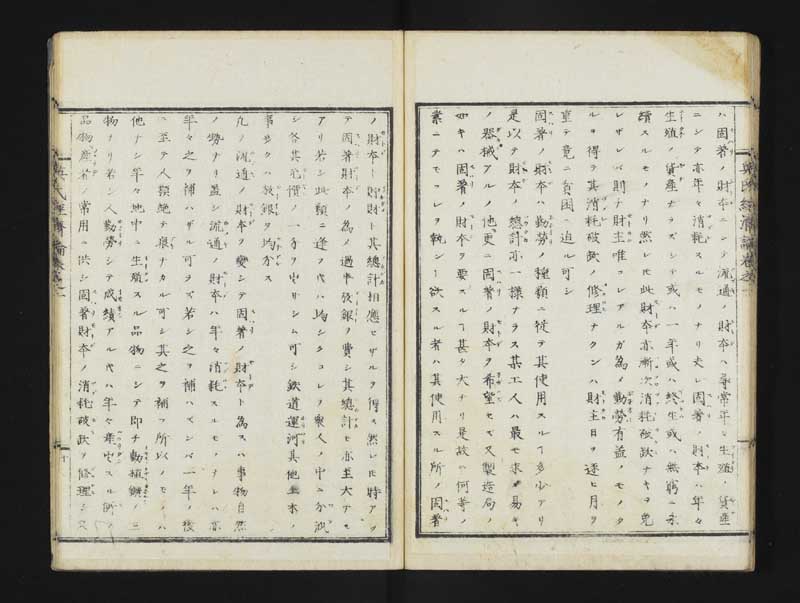 ハ固著ノ財本ニシテ流通ノ財本ハ尋常年々生殖ノ貨産
ニシテ亦年々消耗スルモノナリ又固著ノ財本ハ年々
生殖ノ貨産モラズシテ或ハ一年或ハ終生或ハ無窮ニ永
續スルモノナリ然レ𪜈此財本亦漸次消耗破跌ナキヲ免
レザレバ則チ財主唯コレアルガ為メ勤勞有益ノモノタ
ルヲ得テ其消耗破跌ノ修理ナクンハ財主日ヲ逐ヒ月ヲ
重テ竟ニ貧困ニ迫ル可シ
固著ノ財本ハ勤勞ノ種類ニ從テ其使用スルヿ多少アリ
是以テ財本ノ總計亦一樣ナラス某工人ハ最モ求メ易キ
ノ器械アルノ他更ニ固著ノ財本ヲ希望セズ又製造局ノ
如キハ固著ノ財本ヲ要スルヿ甚タ大ナリ是故ニ何等ノ
業ニテモコレヲ執ント欲スル者ハ其使用スル所ノ固著
ノ財本ト貯財ト其總計相應セザルヲ得ス然レ𪜈時アツ
テ固著財本ノ為メ過半ノ銀ヲ費シ其總計モ亦至大ナモ
アリ若シ此類ニ逢フ𪜈ハ均シクコレヲ衆人ノ中ニ分派
シ各其花費ノ一分ヲ出サシム可シ鉄道運河其他土木ノ
事多クハ散銀ヲ均分ス
凡ソ流通ノ財本ヲ變シテ固著ノ財本ト為スハ事物自然
ノ勢ナリ蓋シ流通ノ財本ハ年々消耗スルモノナレハ亦
年々之ヲ補ハザル可ラズ若シ之ヲ補ハズンバ一年ノ後
ニ至テ人類絶テ泉ナカル可シ其之ヲ補フ所以ノモノハ
他ナシ年々地中ニ生殖スル品物ニシテ即チ動植礦ノ三
物ナリ若シ人勤勞シテ成績アル𪜈ハ年々産出スル所ノ
品物産者常用ニ供シ固著財本ノ消耗破跌ヲ修理シ又
英氏經濟論卷之二
十